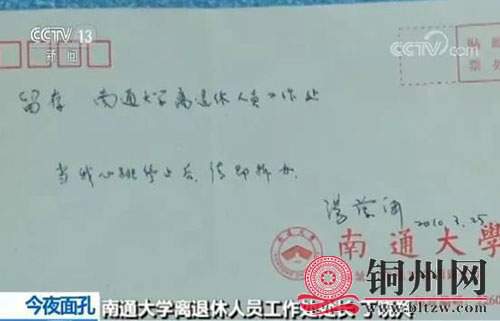 CCTV 13
新闻
CCTV.com
贴邮
票处
留存 南通大学离退休人员工作处
当我心跳停止后,请即拆开.
2010.3.25
南通大學
南通大學
今夜面孔
南通大学离退休人员工作处处长
铜州网
www.bltzw.com